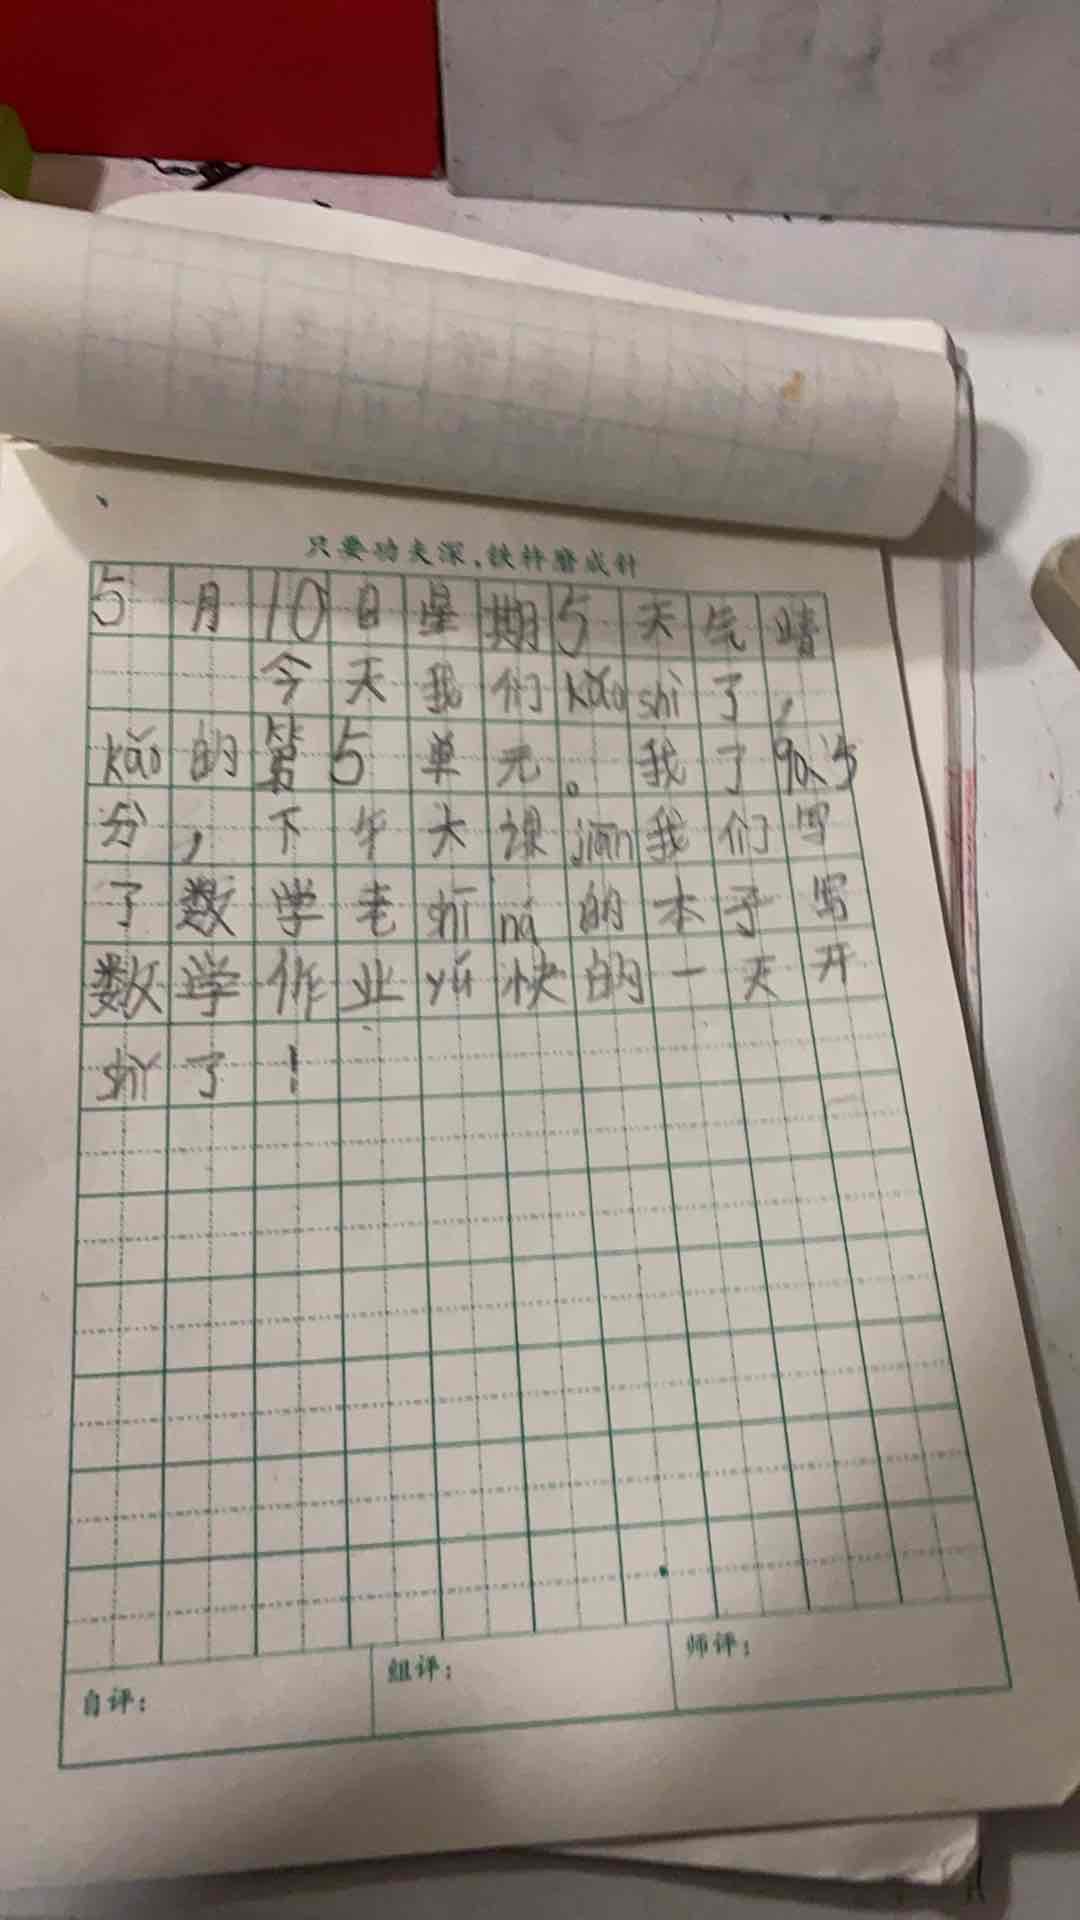 只要功夫深,铁杵磨成针
5月10日星期5天气晴
今天我们kǎoshì了,
kǎo的第5单元。我了90.5
分,下午大课jiān我们写
了数学老shīná的本子写
数学作业yú快的一天开
shǐ了!
自评:
组评:
师评: